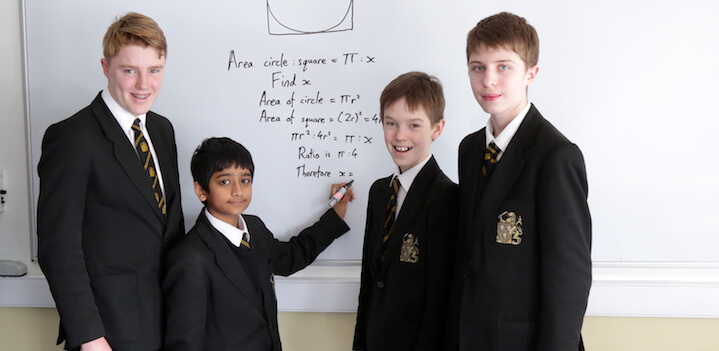 Area circle : square = π : x
Find x
Area of circle = πr²
Area of square = (2r)² = 4r
πr² : 4r² = π : x
Ratio is π : 4
Therefore x =